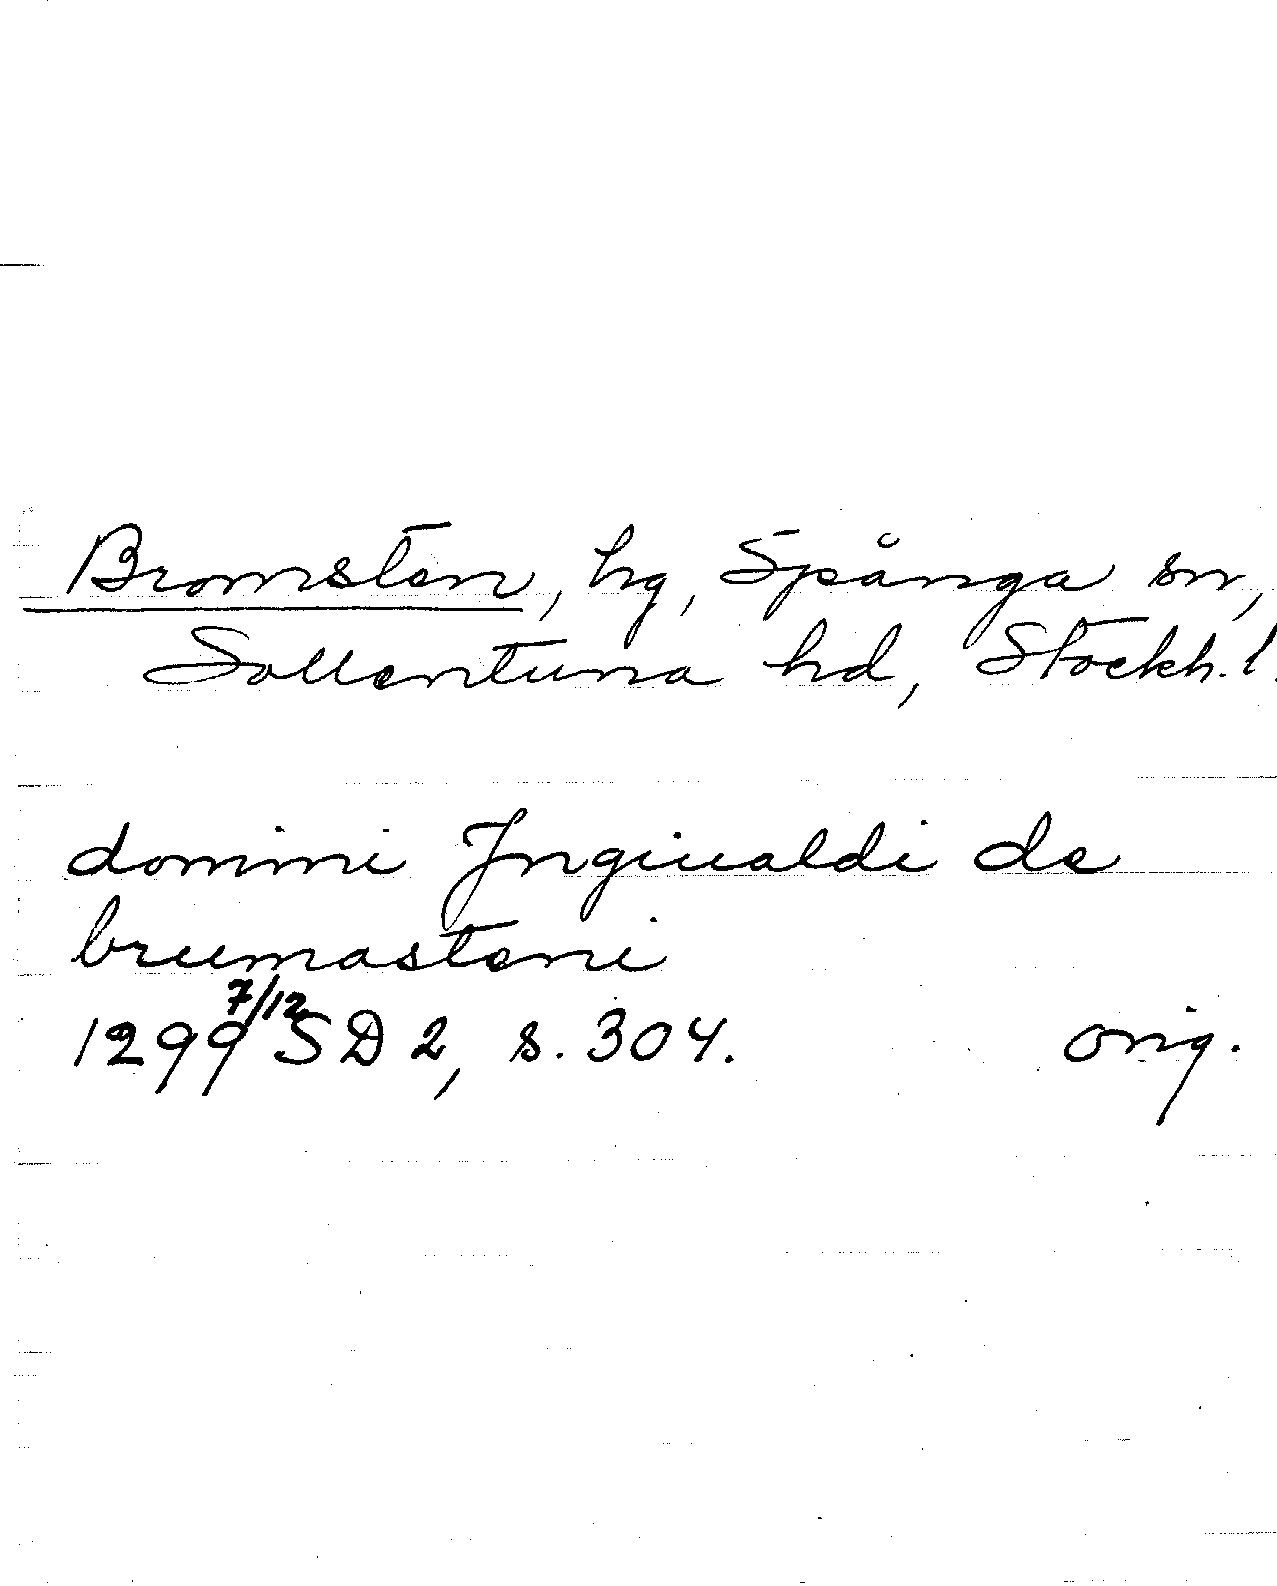 Bromsten, hg, Spånga sn,
Sollentuna hd, Stockh. l.
domini Jngiualdi de
brumasteni
1299 7/12 SD 2, s. 304. orig.